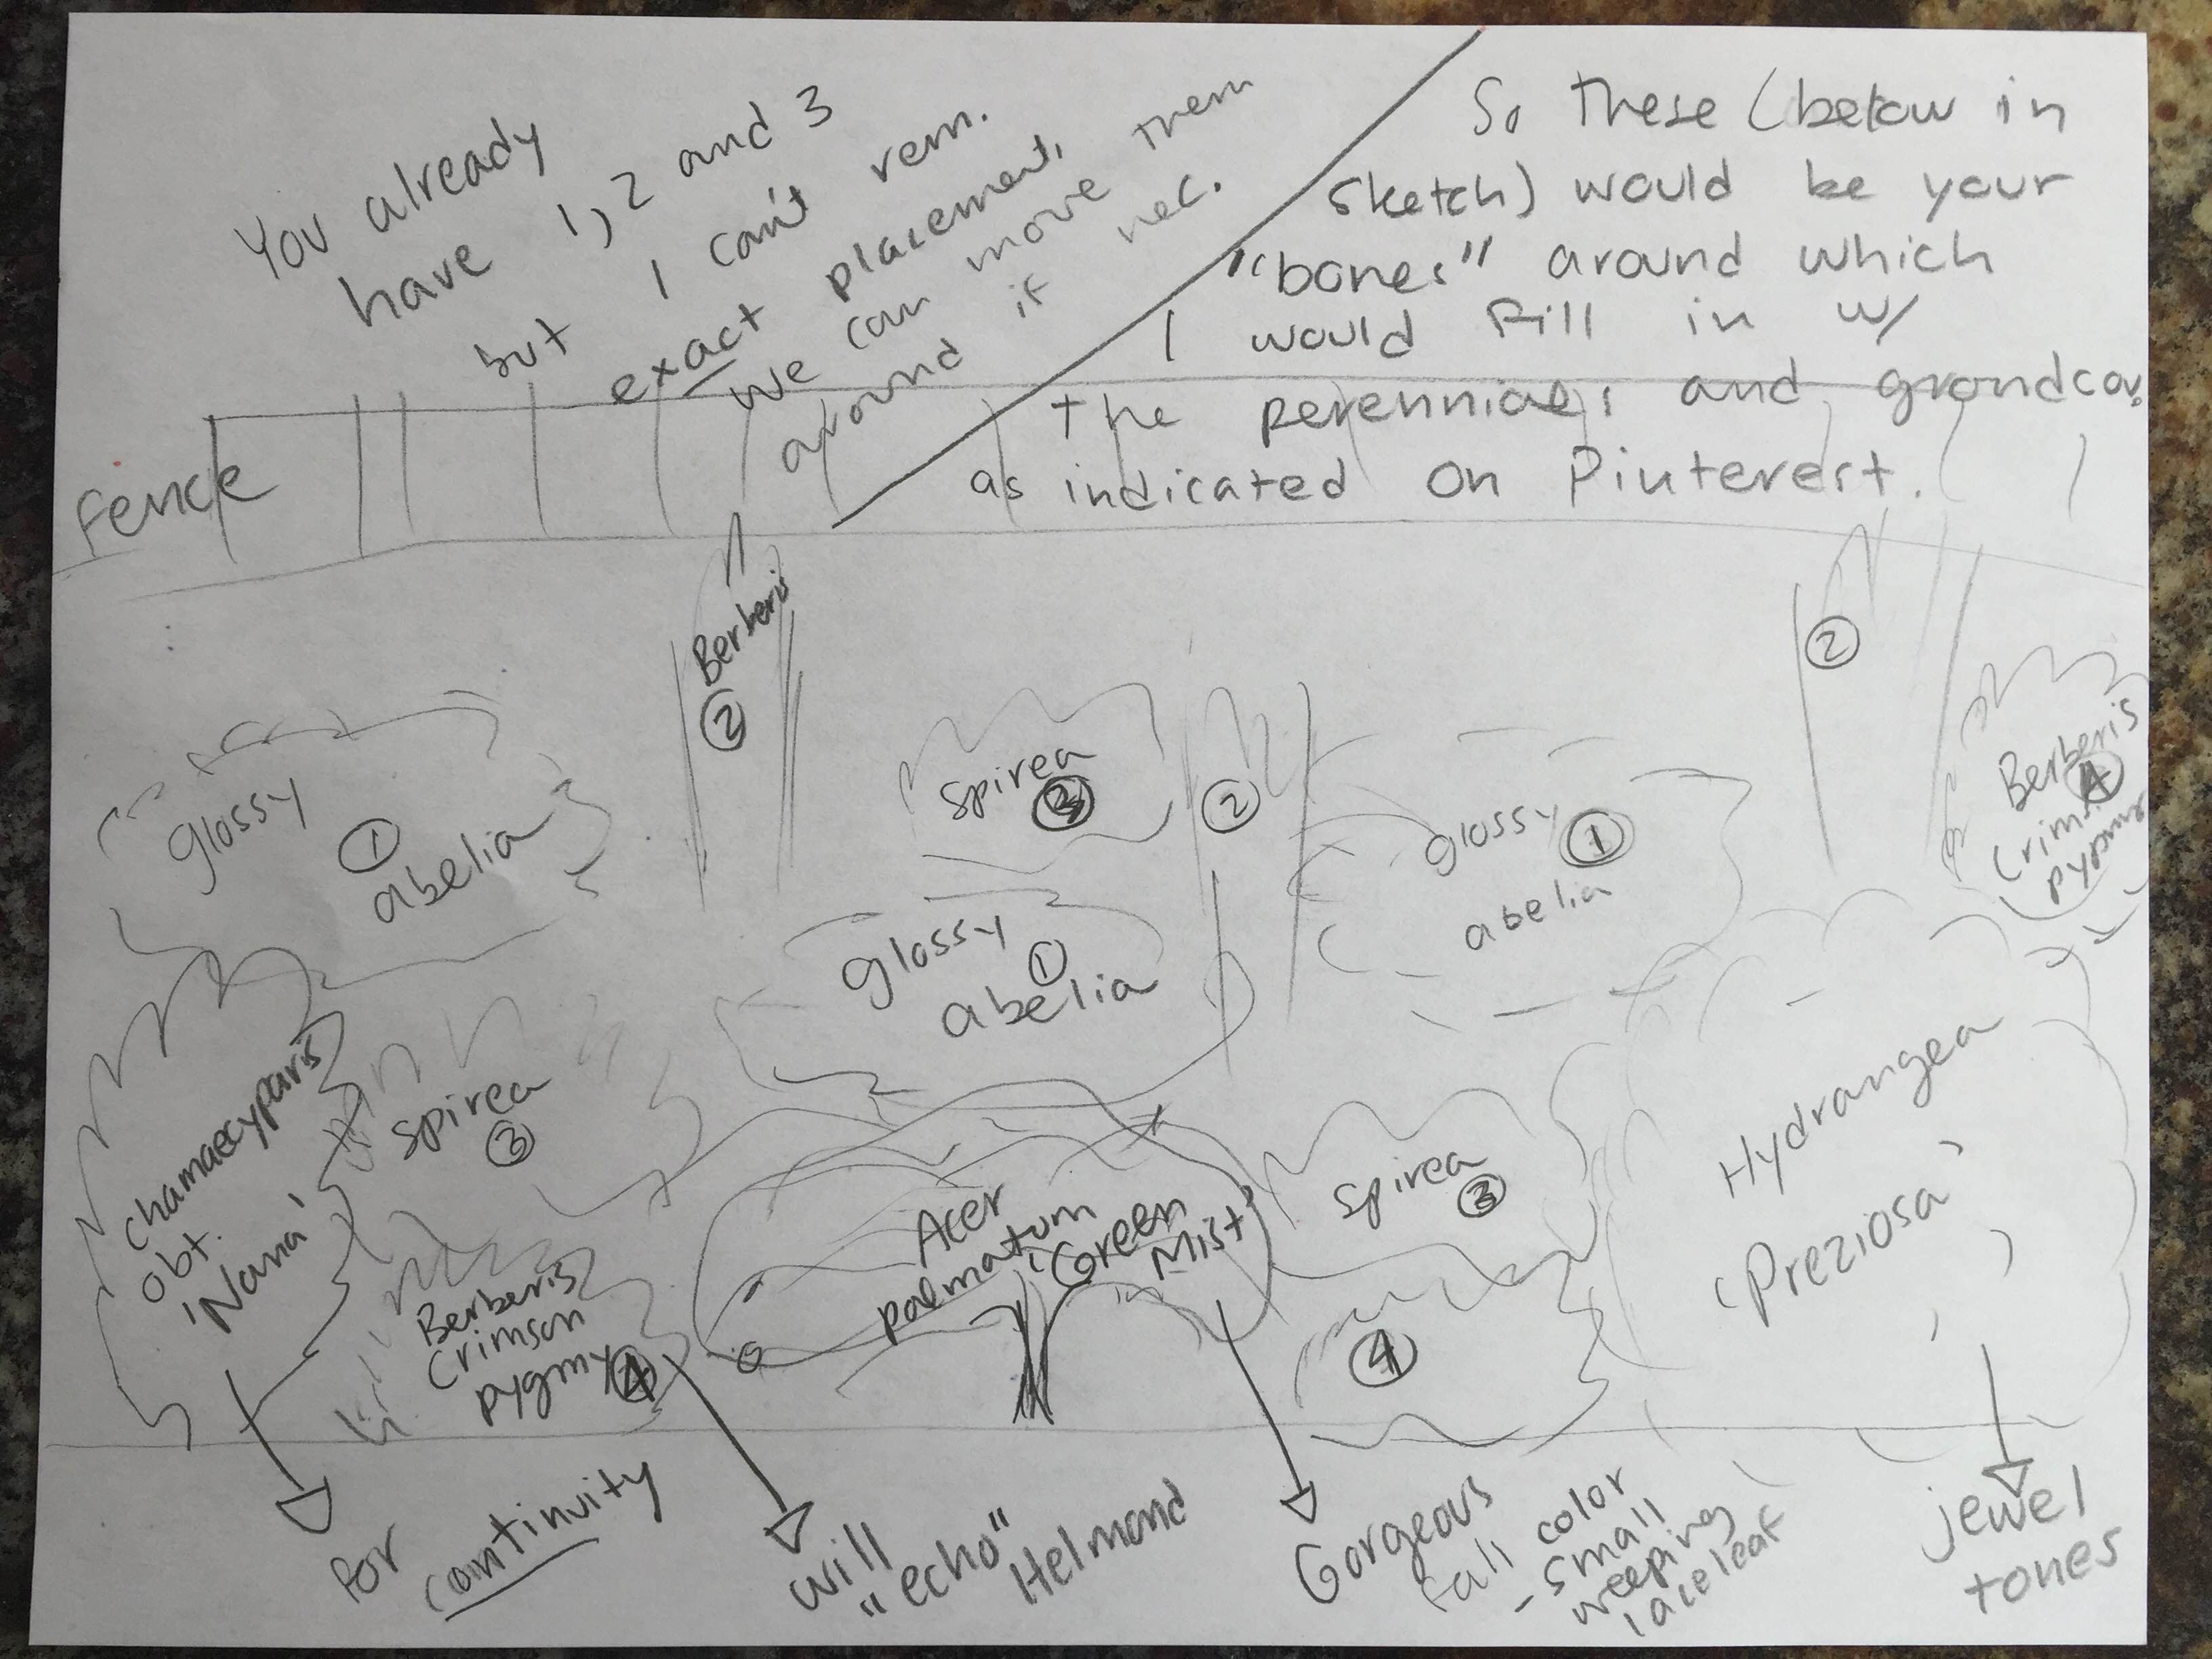 You already
have 1, 2 and 3
but I can't rem.
exact placement,
we can move them
around if nec.
So these (below in
sketch) would be your
"bones" around which
I would fill in w/
the perennials and grondcov.
as indicated on Pinterest.
Fence
Berberis
2
2
Spirea
3
2
glossy
1
abelia
glossy
1
abelia
Berberis
4
Crimson
pygmy
glossy
1
abelia
Chamaecyparis
obt.
'Nana'
Spirea
3
Acer
palmatum
'Green
Mist'
Spirea
3
Hydrangea
'Preziosa'
Berberis
Crimson
pygmy 4
4
for
continuity
will
"echo"
Helmond
Gorgeous
fall color
- small
weeping
laceleaf
jewel
tones